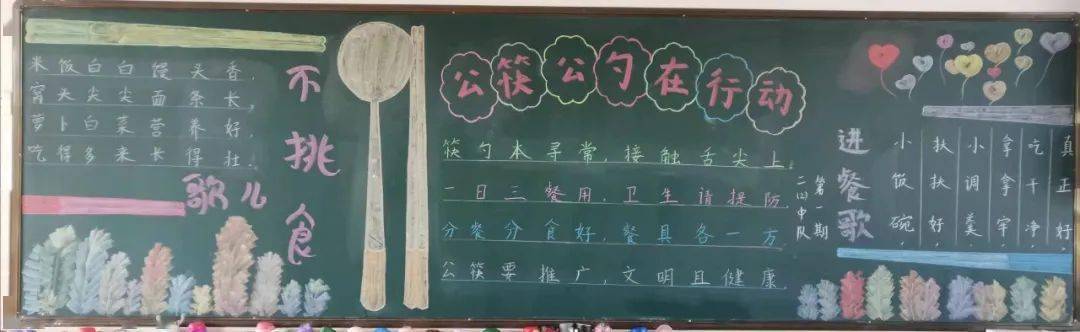 米饭白白馒头香，
窝头尖尖面条长，
萝卜白菜营养好，
吃得多来长得壮。
不挑食
歌儿
公筷公勺在行动
筷勺本寻常，接触舌尖上。
一日三餐用，卫生请提防。
分餐分食好，餐具各一方。
公筷要推广，文明且健康。
第一期
二(四)中队
进餐歌
小饭碗，
扶扶好，
小调羹，
拿拿牢，
吃干净，
真正好